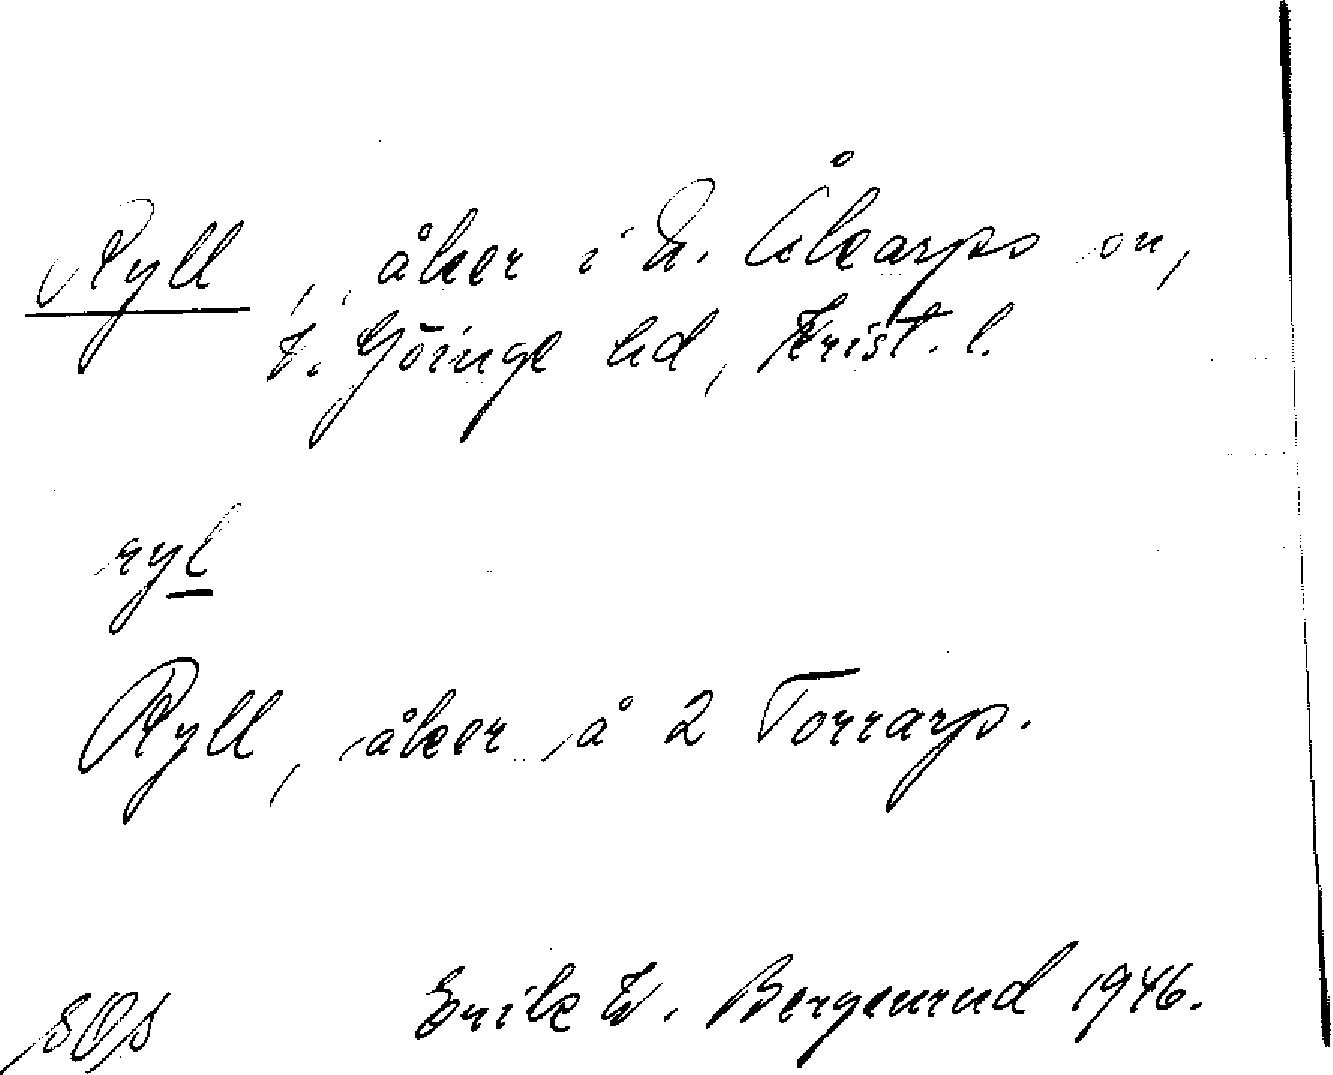 Ryll, åker i V. Åkarps sn,
V. Göinge hd, Krist. l.
ryl
Ryll, åker å 2 Torrarp.
Erik W. Bergenrud 1946.